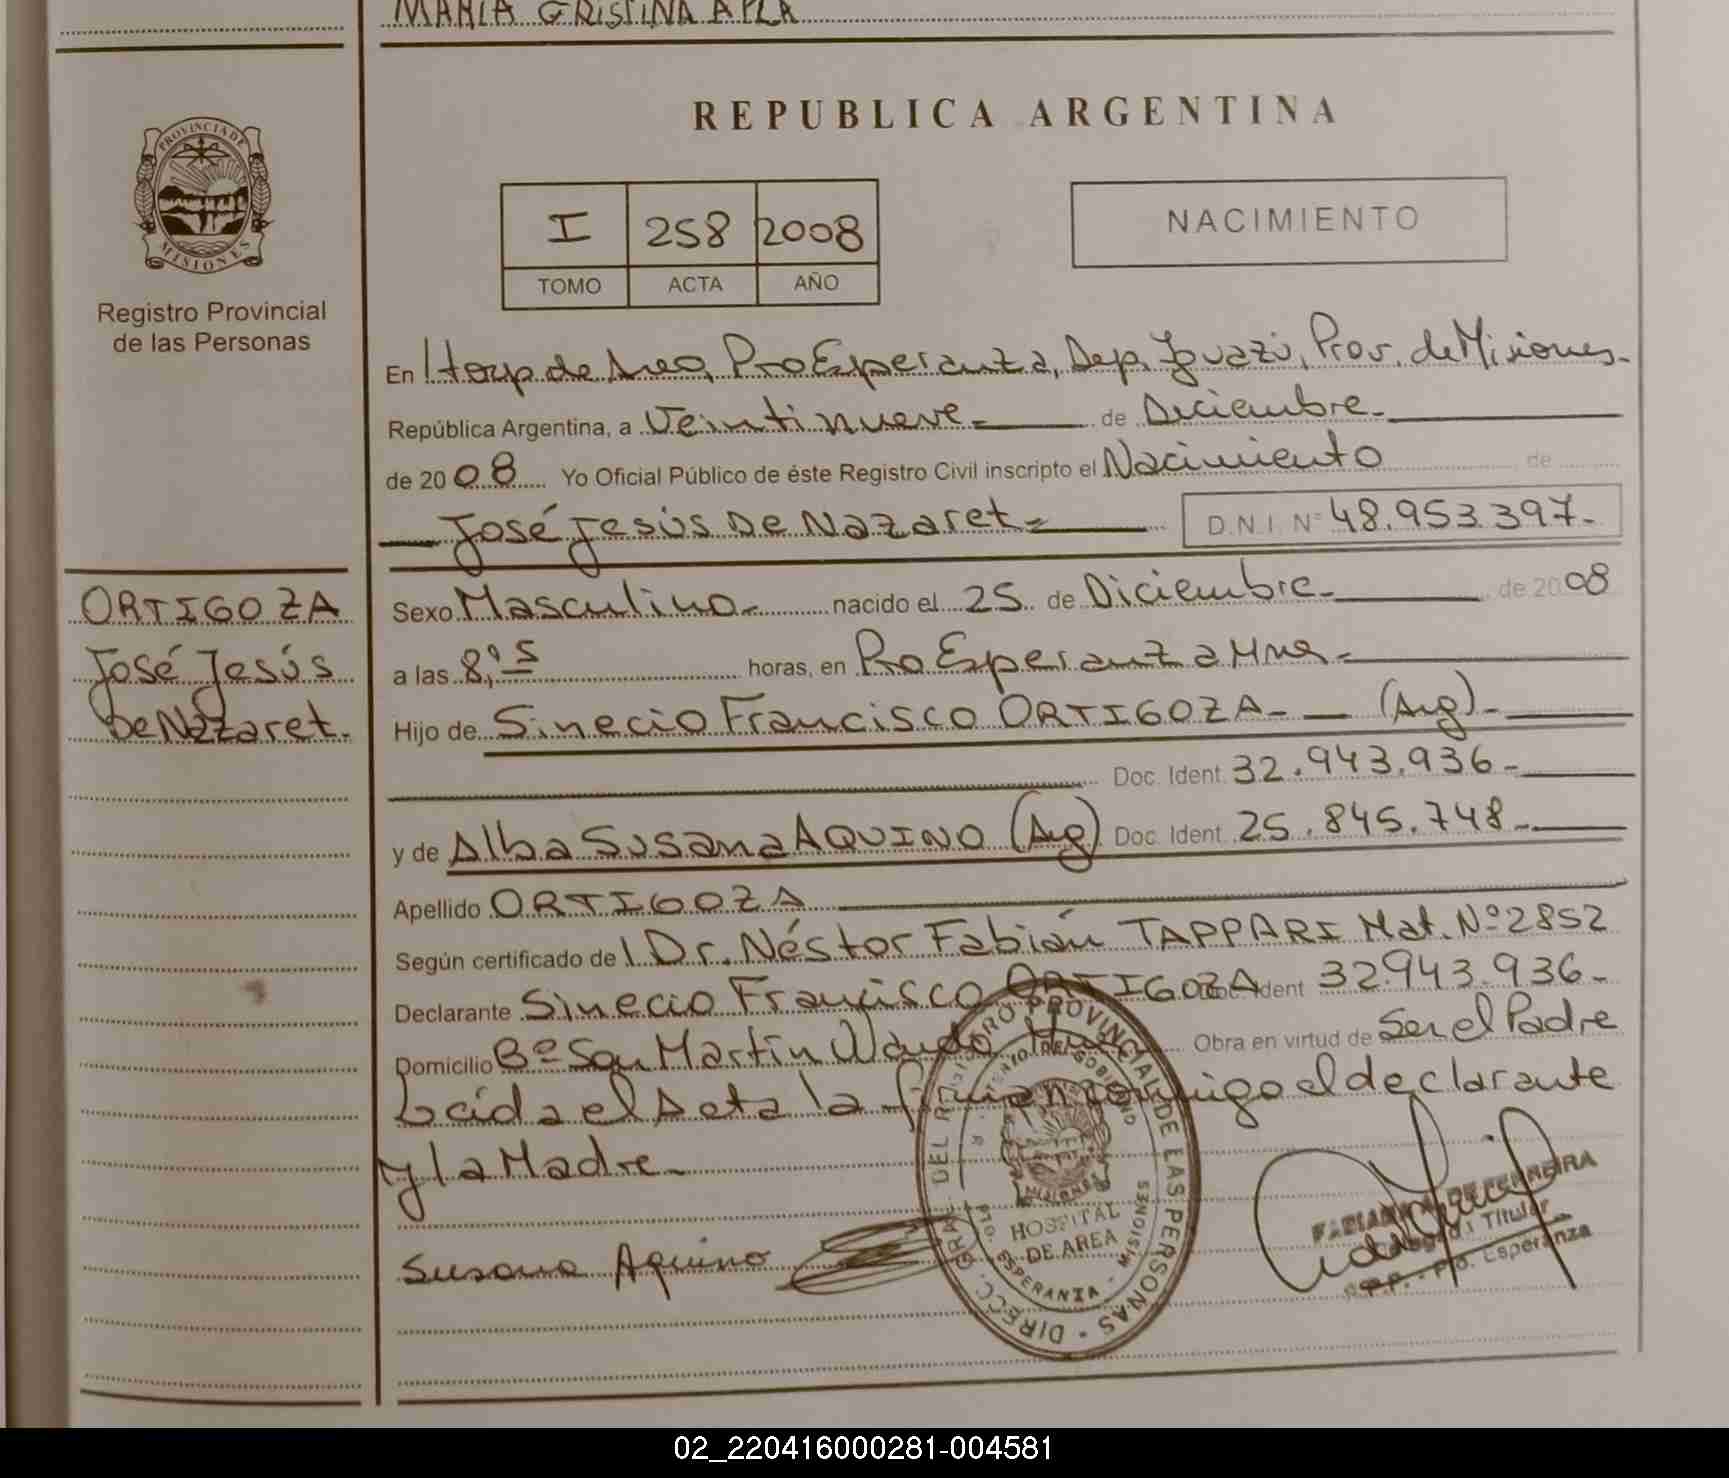 MARIA CRISTINA
REPUBLICA ARGENTINA
PROVINCIA DE
MISIONES
Registro Provincial
de las Personas
I 258 2008
TOMO ACTA AÑO
NACIMIENTO
En Hosp de Area, Pto Esperanza, Dep. Iguazú, Prov. de Misiones.
República Argentina, a Veintinueve de Diciembre
de 2008 Yo Oficial Público de éste Registro Civil inscripto el Nacimiento de
José Jesús De Nazaret
D.N.I. Nº 48.953.397.
ORTIGOZA
José Jesús
De Nazaret.
Sexo Masculino nacido el 25 de Diciembre de 2008
a las 8,05 horas, en Pto Esperanza Mnes
Hijo de Sinecio Francisco ORTIGOZA (Arg)
Doc. Ident. 32.943.936
y de Alba Susana AQUINO (Arg) Doc. Ident. 25.845.748
Apellido ORTIGOZA
Según certificado de Dr. Néstor Fabián TAPPARI Mat. Nº 2852
Declarante Sinecio Francisco ORTIGOZA Doc. Ident 32943.936
Domicilio Bº San Martín Wanda Mnes Obra en virtud de Ser el Padre
Leída el Acta la firman conmigo el declarante
y la Madre
Susana Aquino
DIRECC. GRAL. DEL REGISTRO PROVINCIAL DE LAS PERSONAS
MISIONES
HOSPITAL
DE AREA
PTO. ESPERANZA - MISIONES
DE FERREIRA
Titular
R.P.P. - Pto. Esperanza
02_220416000281-004581